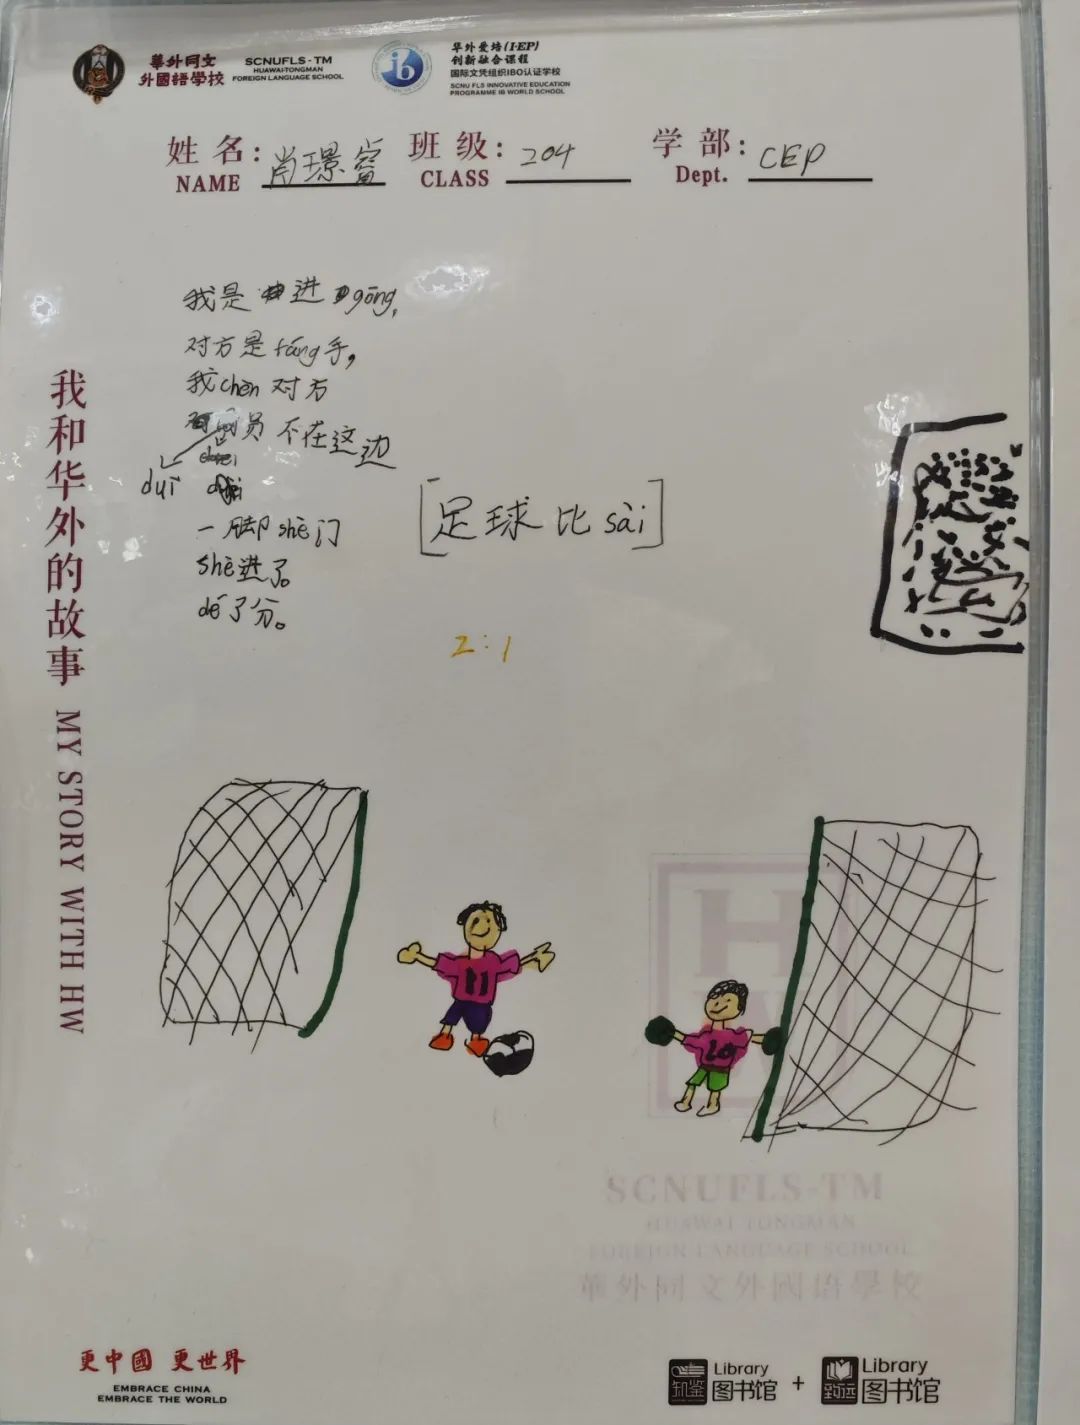 華外同文
外國語學校
SCNUFLS-TM
HUAWAI-TONGMAN
FOREIGN LANGUAGE SCHOOL
ib
华外爱培(I·EP)
创新融合课程
国际文凭组织IBO认证学校
SCNU FLS INNOVATIVE EDUCATION
PROGRAMME IB WORLD SCHOOL
姓名: 肖璟
NAME
班级: 204
CLASS
学部: CEP
Dept.
我和华外的故事 MY STORY WITH HW
我是进gōng,
对方是fáng手,
我chèn对方
员不在这边
duì
一脚shè门
shè进了。
dé了分。
[足球比sài]
2:1
11
10
HW
SCNUFLS-TM
HUAWAI TONGMAN
FOREIGN LANGUAGE SCHOOL
華外同文外國語學校
更中國 更世界
EMBRACE CHINA
EMBRACE THE WORLD
Library
图书馆
+
Library
图书馆